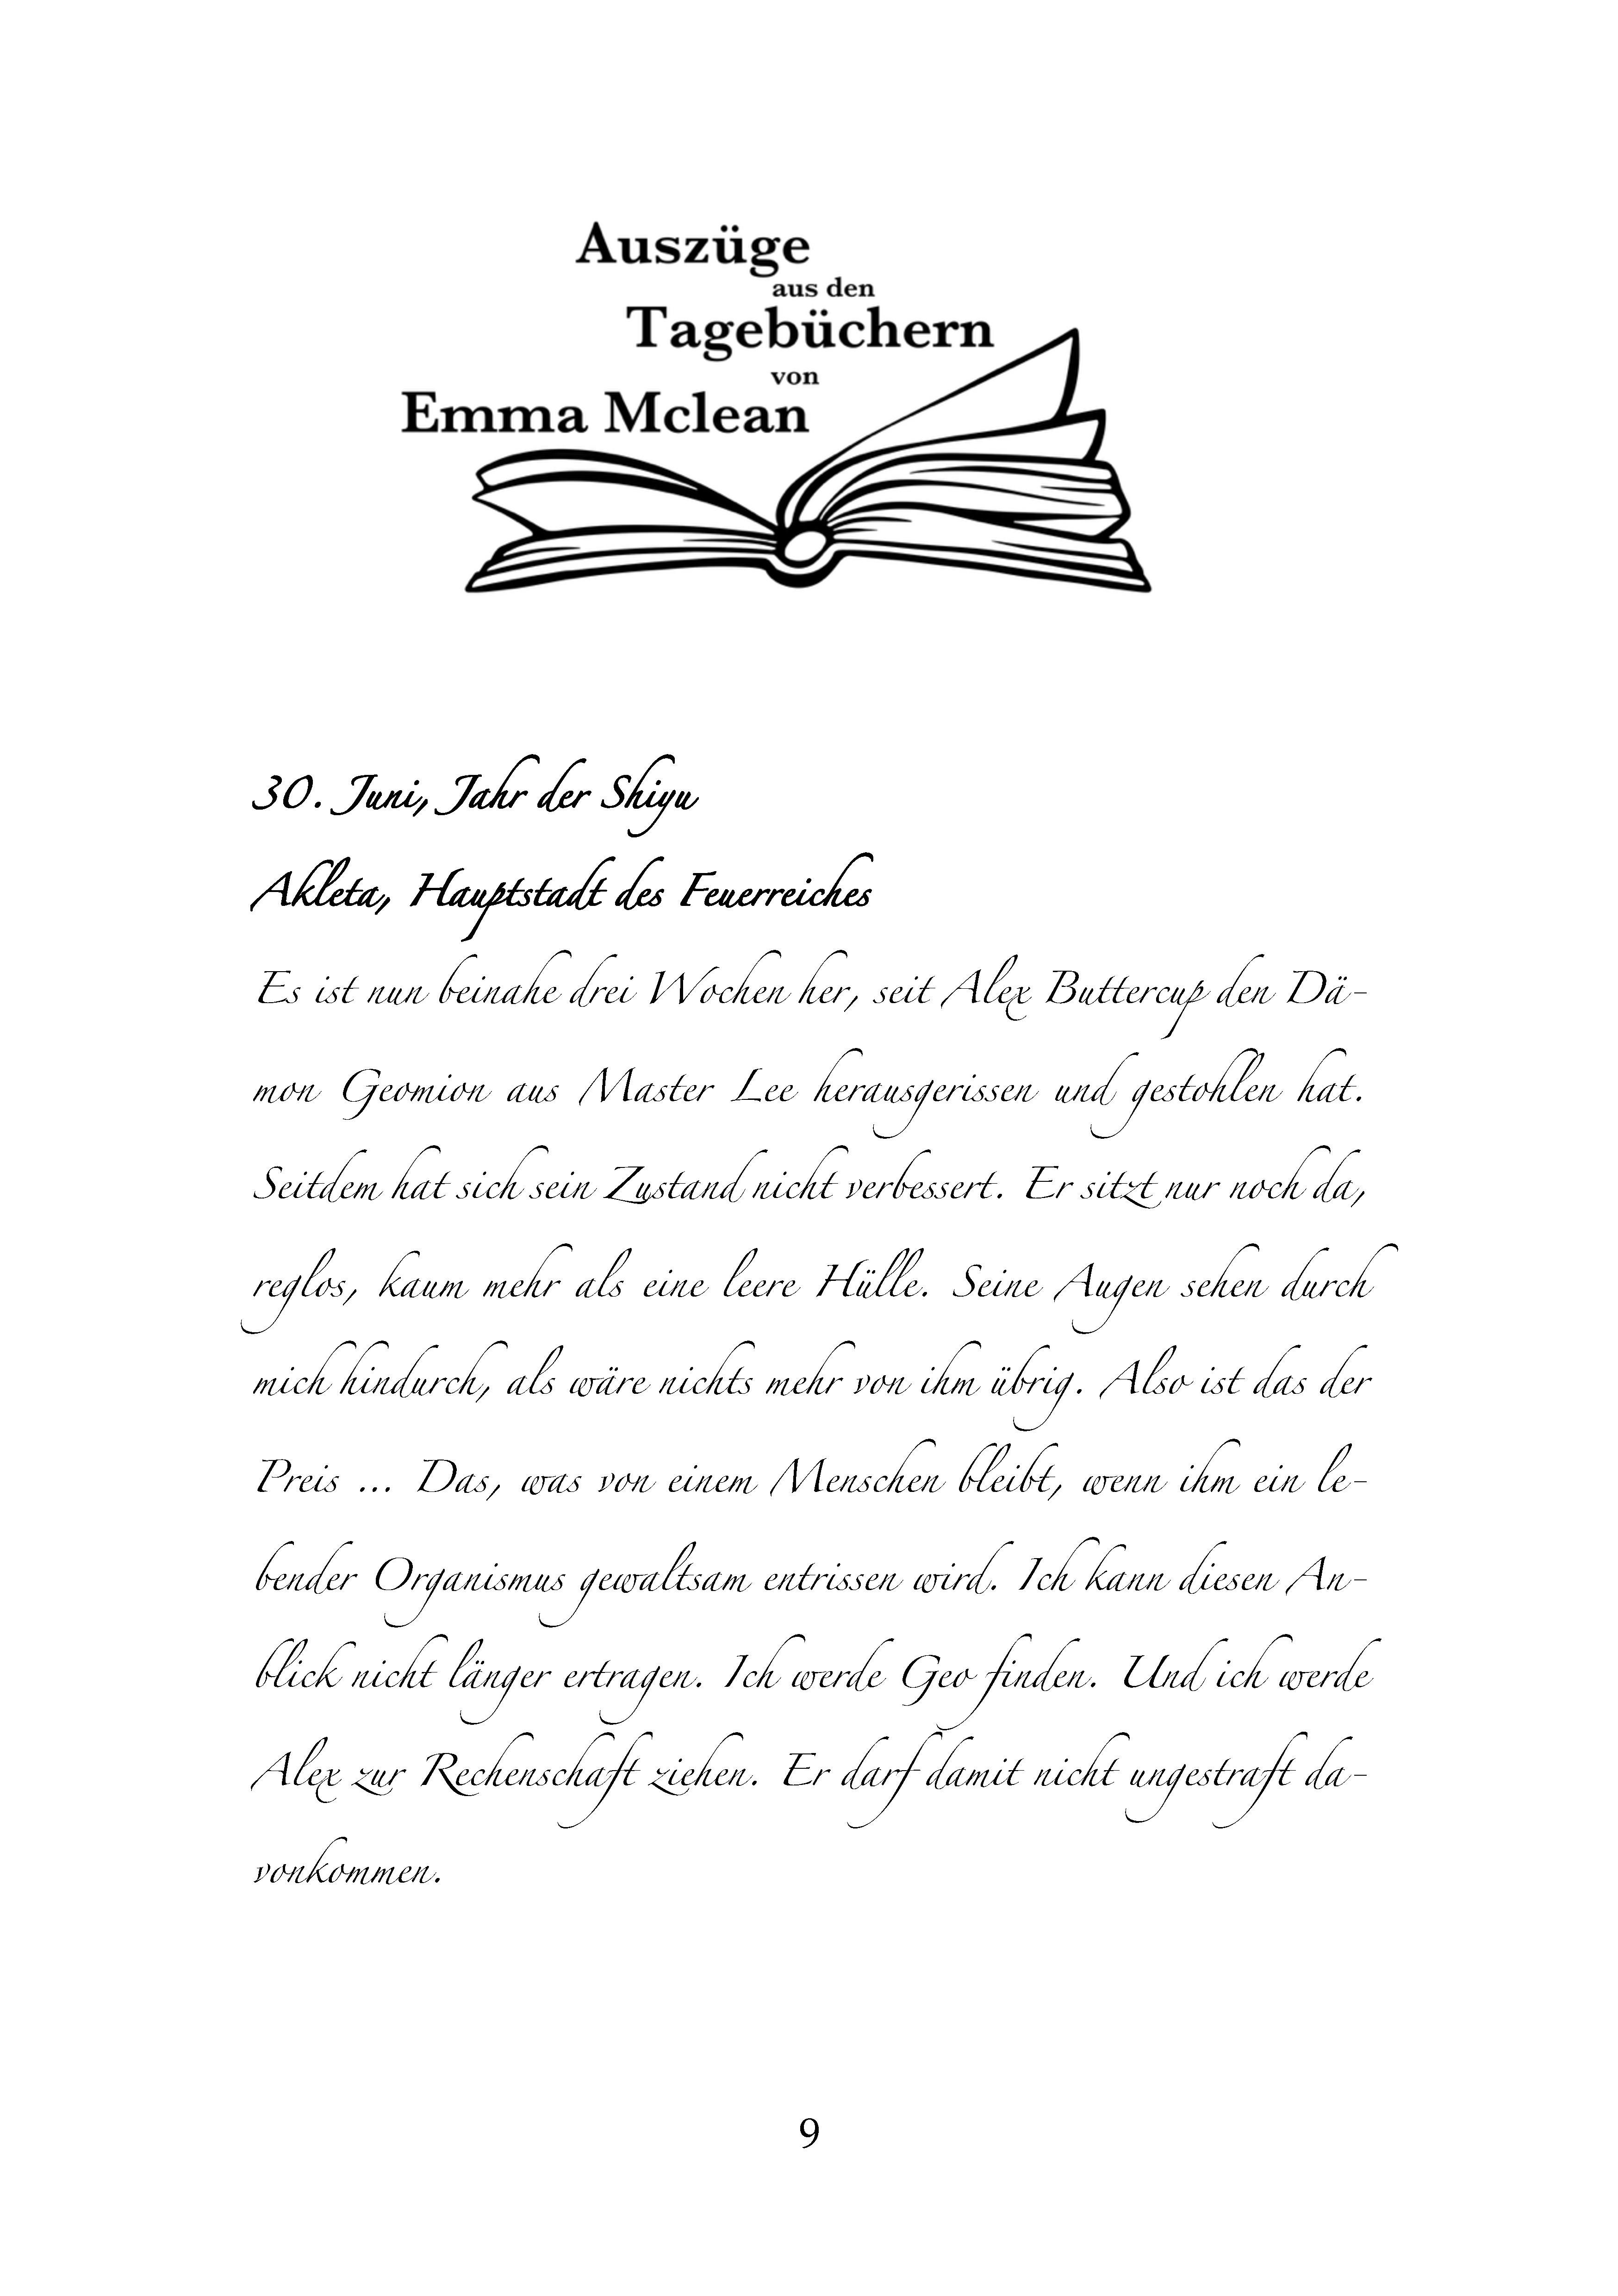 Auszüge
aus den
Tagebüchern
von
Emma Mclean
30. Juni, Jahr der Shiyu
Akleta, Hauptstadt des Feuerreiches
Es ist nun beinahe drei Wochen her, seit Alex Buttercup den Dä-
mon Geomion aus Master Lee herausgerissen und gestohlen hat.
Seitdem hat sich sein Zustand nicht verbessert. Er sitzt nur noch da,
reglos, kaum mehr als eine leere Hülle. Seine Augen sehen durch
mich hindurch, als wäre nichts mehr von ihm übrig. Also ist das der
Preis ... Das, was von einem Menschen bleibt, wenn ihm ein le-
bender Organismus gewaltsam entrissen wird. Ich kann diesen An-
blick nicht länger ertragen. Ich werde Geo finden. Und ich werde
Alex zur Rechenschaft ziehen. Er darf damit nicht ungestraft da-
vonkommen.
9